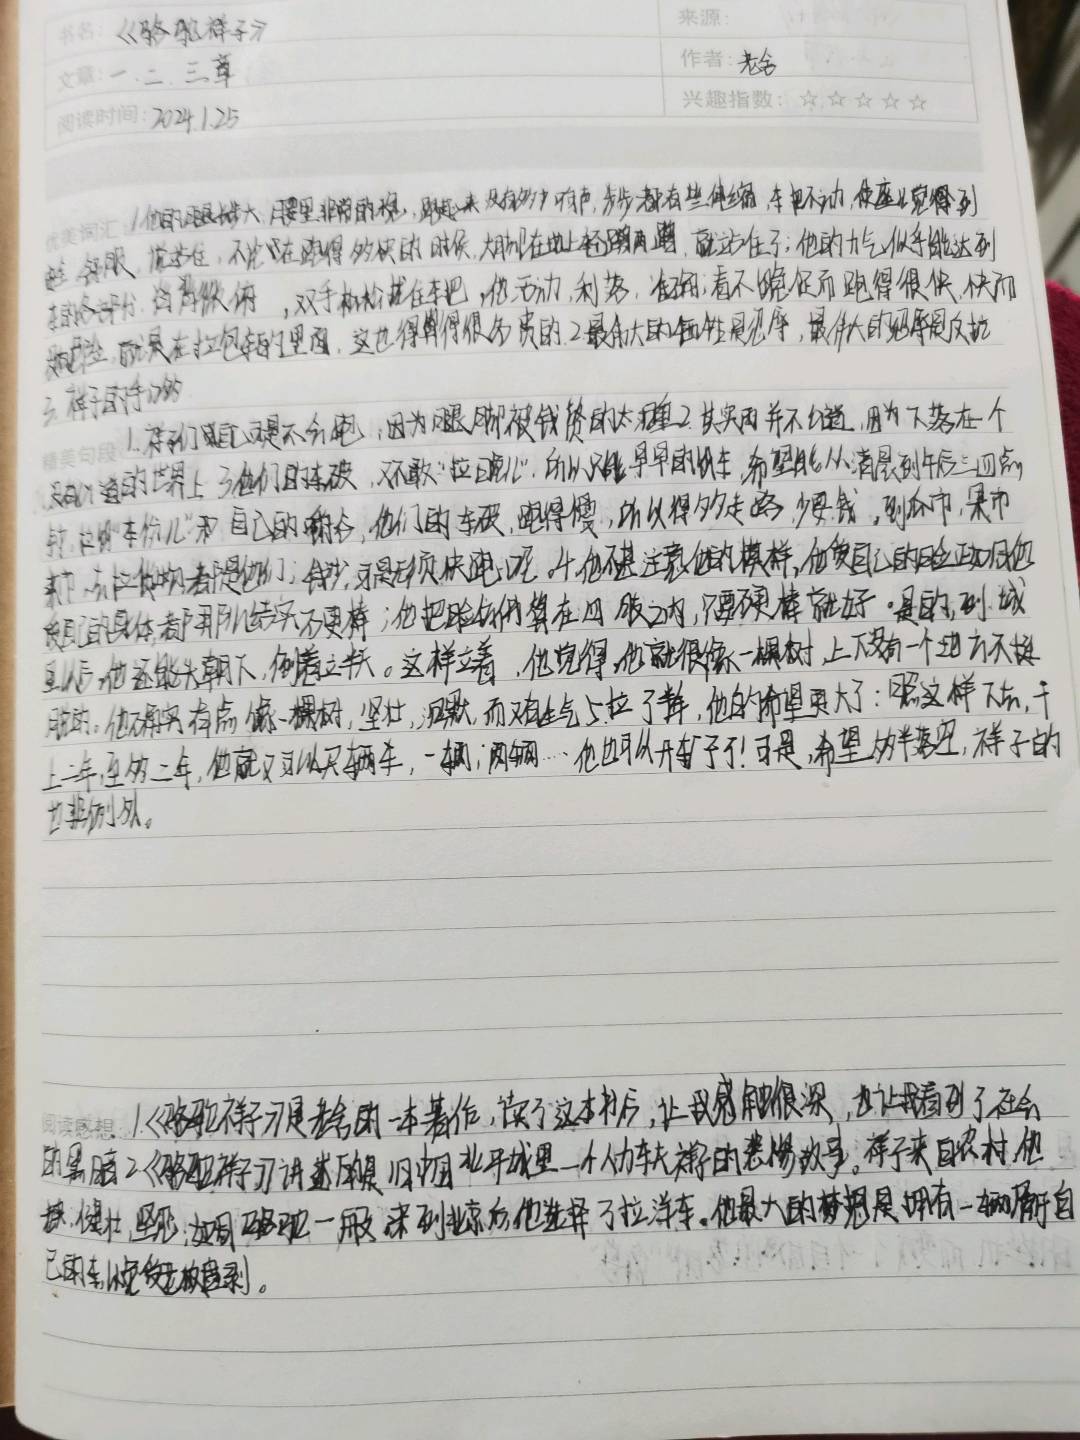 书名：《骆驼祥子》
来源：
文章：一、二、三章
作者：老舍
阅读时间：2024.1.25
兴趣指数：☆☆☆☆☆
优美词汇：1.他的腿长步大，腰里非常的稳，跑起来没有多少响声，步步都有些伸缩，车把不动，使座儿觉得到
舒服。说站住，不论在跑得多快的时候，大脚在地上轻蹭两蹭，就站住了；他的力气似乎能达到
车的各部分。脊背微俯，双手松松拢住车把，他活动，利落，准确；看不晚促而跑得很快，快而
没危险。就是在拉包车的里面，这也得算得很名贵的。2.最伟大的牺牲是忍辱，最伟大的忍辱是反抗
3.祥子的手
精美句段 1. 自己可是不会跑，因为腿脚被钱赘的太重2.其实雨并不公道，因为下落在一个
没有公道的世界上 3他们的车破，又不敢“拉晚儿”，所以只能早早的出车，希望能从清晨到午后三四点
钟，拉出“车份儿”和自己的嚼谷，他们的车破，跑得慢，所以得多走路，少要钱。到瓜市，果市
菜市，去拉货物都是他们；钱少，可是无须快跑呢。4.他不甚注意他的模样，他爱自己的脸正如同他
爱自己的身体，都那么结实硬棒；他把脸仿佛算在四肢之内，只要硬棒就好。是的，到城
里以后，他还能头朝下，倒着立半天。这样立着，他觉得，他就很像一棵树，上下没有一个地方不挺
脱的。他确实有点像一棵树，坚壮，沉默，而又有生气 5.拉了半年，他的希望更大了：照这样下去，干
上二年，至多二年，他就又可以买辆车，一辆；两辆……他也可以开车厂子了！可是，希望多半落空，祥子的
也非例外。
阅读感想：1.《骆驼祥子》是老舍的一本著作，读了这本书后，让我感触很深，也让我看到了社会
的黑暗 2.《骆驼祥子》讲述的是旧中国北平城里一个人力车夫祥子的悲惨故事。祥子来自农村，他
健壮，坚忍，如同骆驼一般 来到北京后，他选择了拉洋车。他最大的梦想是拥有一辆属于自
己的车，以免受剥。